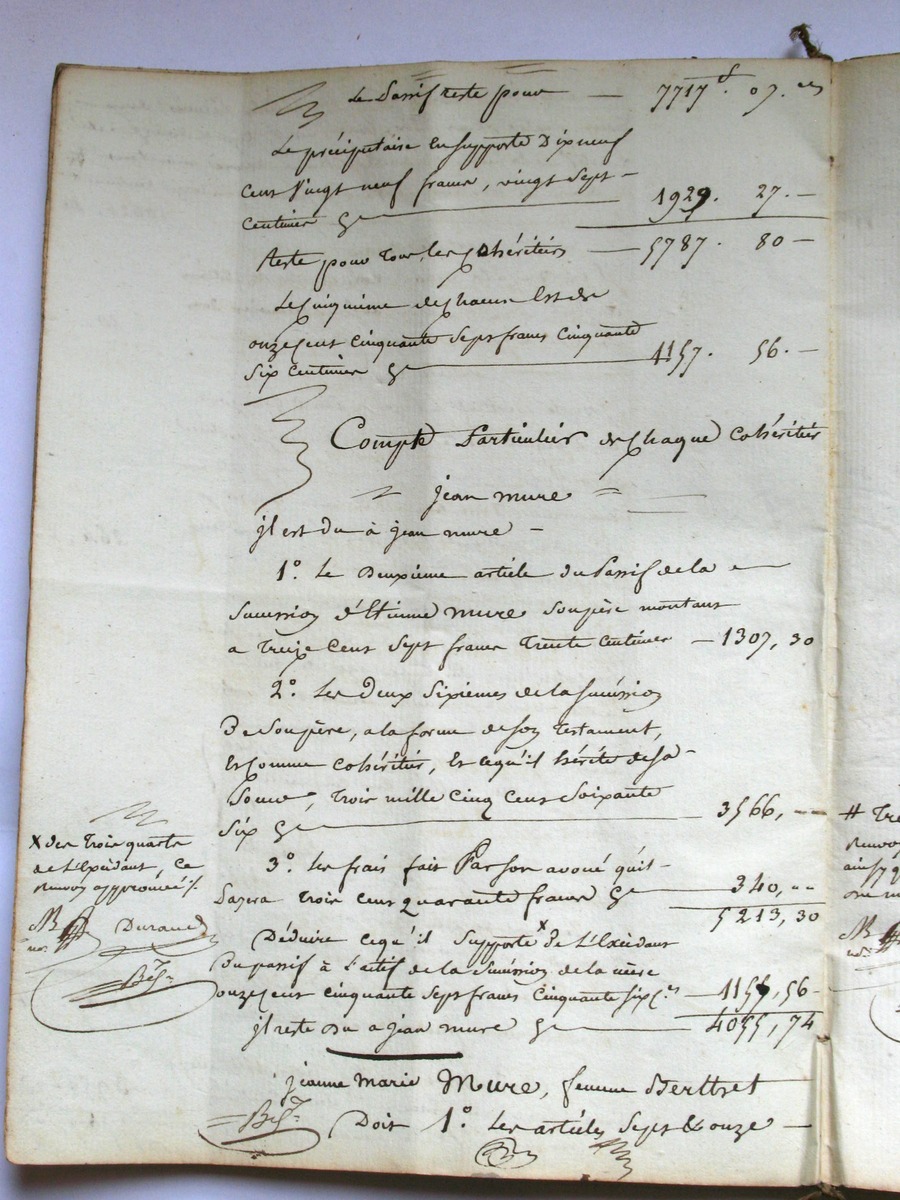 Le Passif reste pour — 7717 f 07. cs
Le précipuitaire en supporte Dixneuf
cent Vingt neuf francs, vingt Sept —
Centimes 1929. 27. —
Reste pour Tous les Cohéritiers — 5787. 80 —
Le Cinquième de Chacun Est de
onze Cent Cinquante Sept francs Cinquante
Six Centimes 1157. 56. —
Compte Particulier de Chaque Cohéritier
jean mure
jl est Du à jean mure —
1° Le Deuxieme article Du Passif de la
Succession d'Etienne mure Son père montant
a Treize Cent Sept francs Trente Centimes — 1307, 30
2° Les Deux Sixiemes de la Succession
De Son père, a la forme de Son Testament,
Et Comme Cohéritier, Et Ce qu'il hérite de Sa
Soeur, Trois mille Cinq Cent Soixante
Six — 3566, --
3° Les frais fait Par Son avoué qu'il
Payera Trois Cent quarante francs 340, --
5213, 30
Déduire Ce qu'il Supporte x de L'Excédant
Du passif à L'actif de la Succession de la mère
onze Cent Cinquante Sept francs Cinquante Six C.es — 1157, 56 -
jl reste Du a jean mure — 4055, 74
x des Trois quarts
de L'Excédant, Ce
Renvoy approuvé
Durand
jeanne Marie Mure, femme Berthet
Doit 1° Les articles Sept & onze —